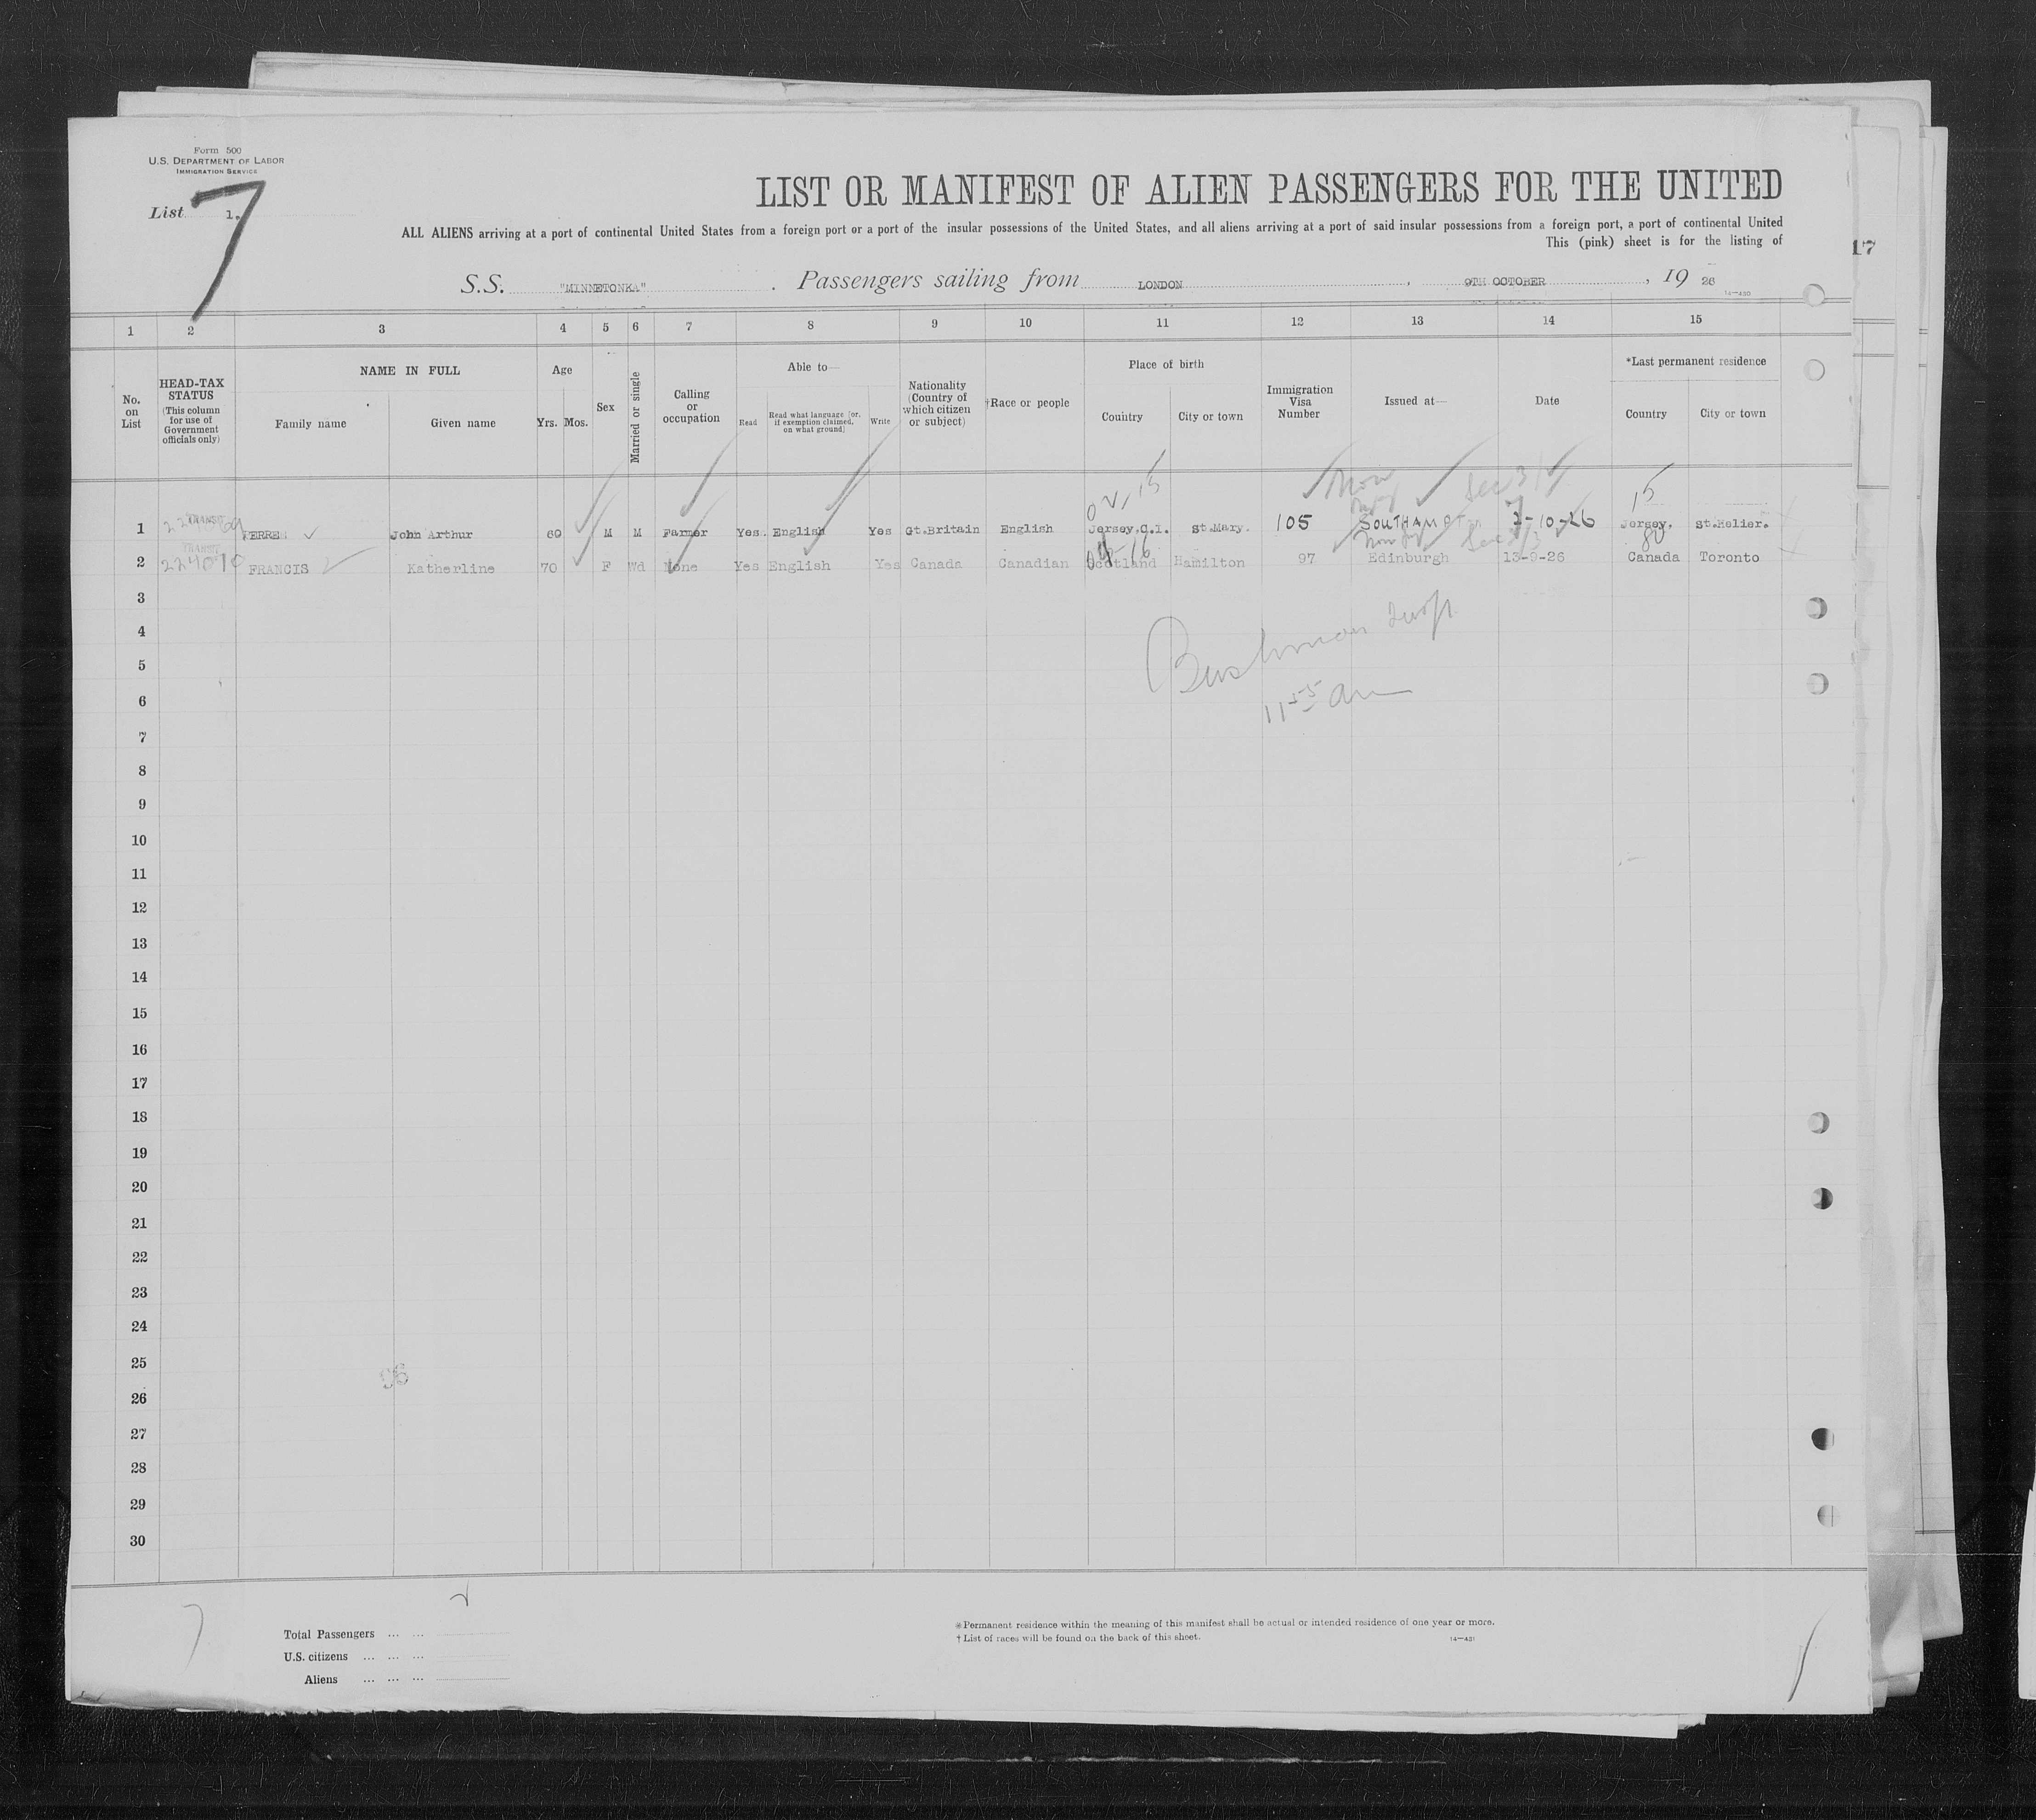 Form 500
U.S. DEPARTMENT OF LABOR
IMMIGRATION SERVICE
List 1.
7
LIST OR MANIFEST OF ALIEN PASSENGERS FOR THE UNITED
ALL ALIENS arriving at a port of continental United States from a foreign port or a port of the insular possessions of the United States, and all aliens arriving at a port of said insular possessions from a foreign port, a port of continental United
This (pink) sheet is for the listing of
17
S.S. "MINNETONKA" . Passengers sailing from LONDON , 9TH OCTOBER , 19 26
14—430
1 2 3 4 5 6 7 8 9 10 11 12 13 14 15
No. on List
HEAD-TAX STATUS (This column for use of Government officials only)
NAME IN FULL
Family name Given name
Age
Yrs. Mos.
Sex
Married or single
Calling or occupation
Able to—
Read Read what language (or, if exemption claimed, on what ground) Write
Nationality (Country of which citizen or subject)
†Race or people
Place of birth
Country City or town
Immigration Visa Number
Issued at—
Date
*Last permanent residence
Country City or town
1 TRANSIT John Arthur 60 M M Farmer Yes. English Yes Gt.Britain English Jersey.C.I. St.Mary. 105 SOUTHAMPTON 7-10-26 Jersey. St.Helier.
2 TRANSIT 224070 FRANCIS Katherline 70 F Wd None Yes English Yes Canada Canadian Scotland Hamilton 97 Edinburgh 13-9-26 Canada Toronto
3
4
5
6
11 55 am
7
8
9
10
11
12
13
14
15
16
17
18
19
20
21
22
23
24
25
96
26
27
28
29
30
Total Passengers ... ...
U.S. citizens ... ... ...
Aliens ... ... ...
*Permanent residence within the meaning of this manifest shall be actual or intended residence of one year or more.
†List of races will be found on the back of this sheet.
14—431